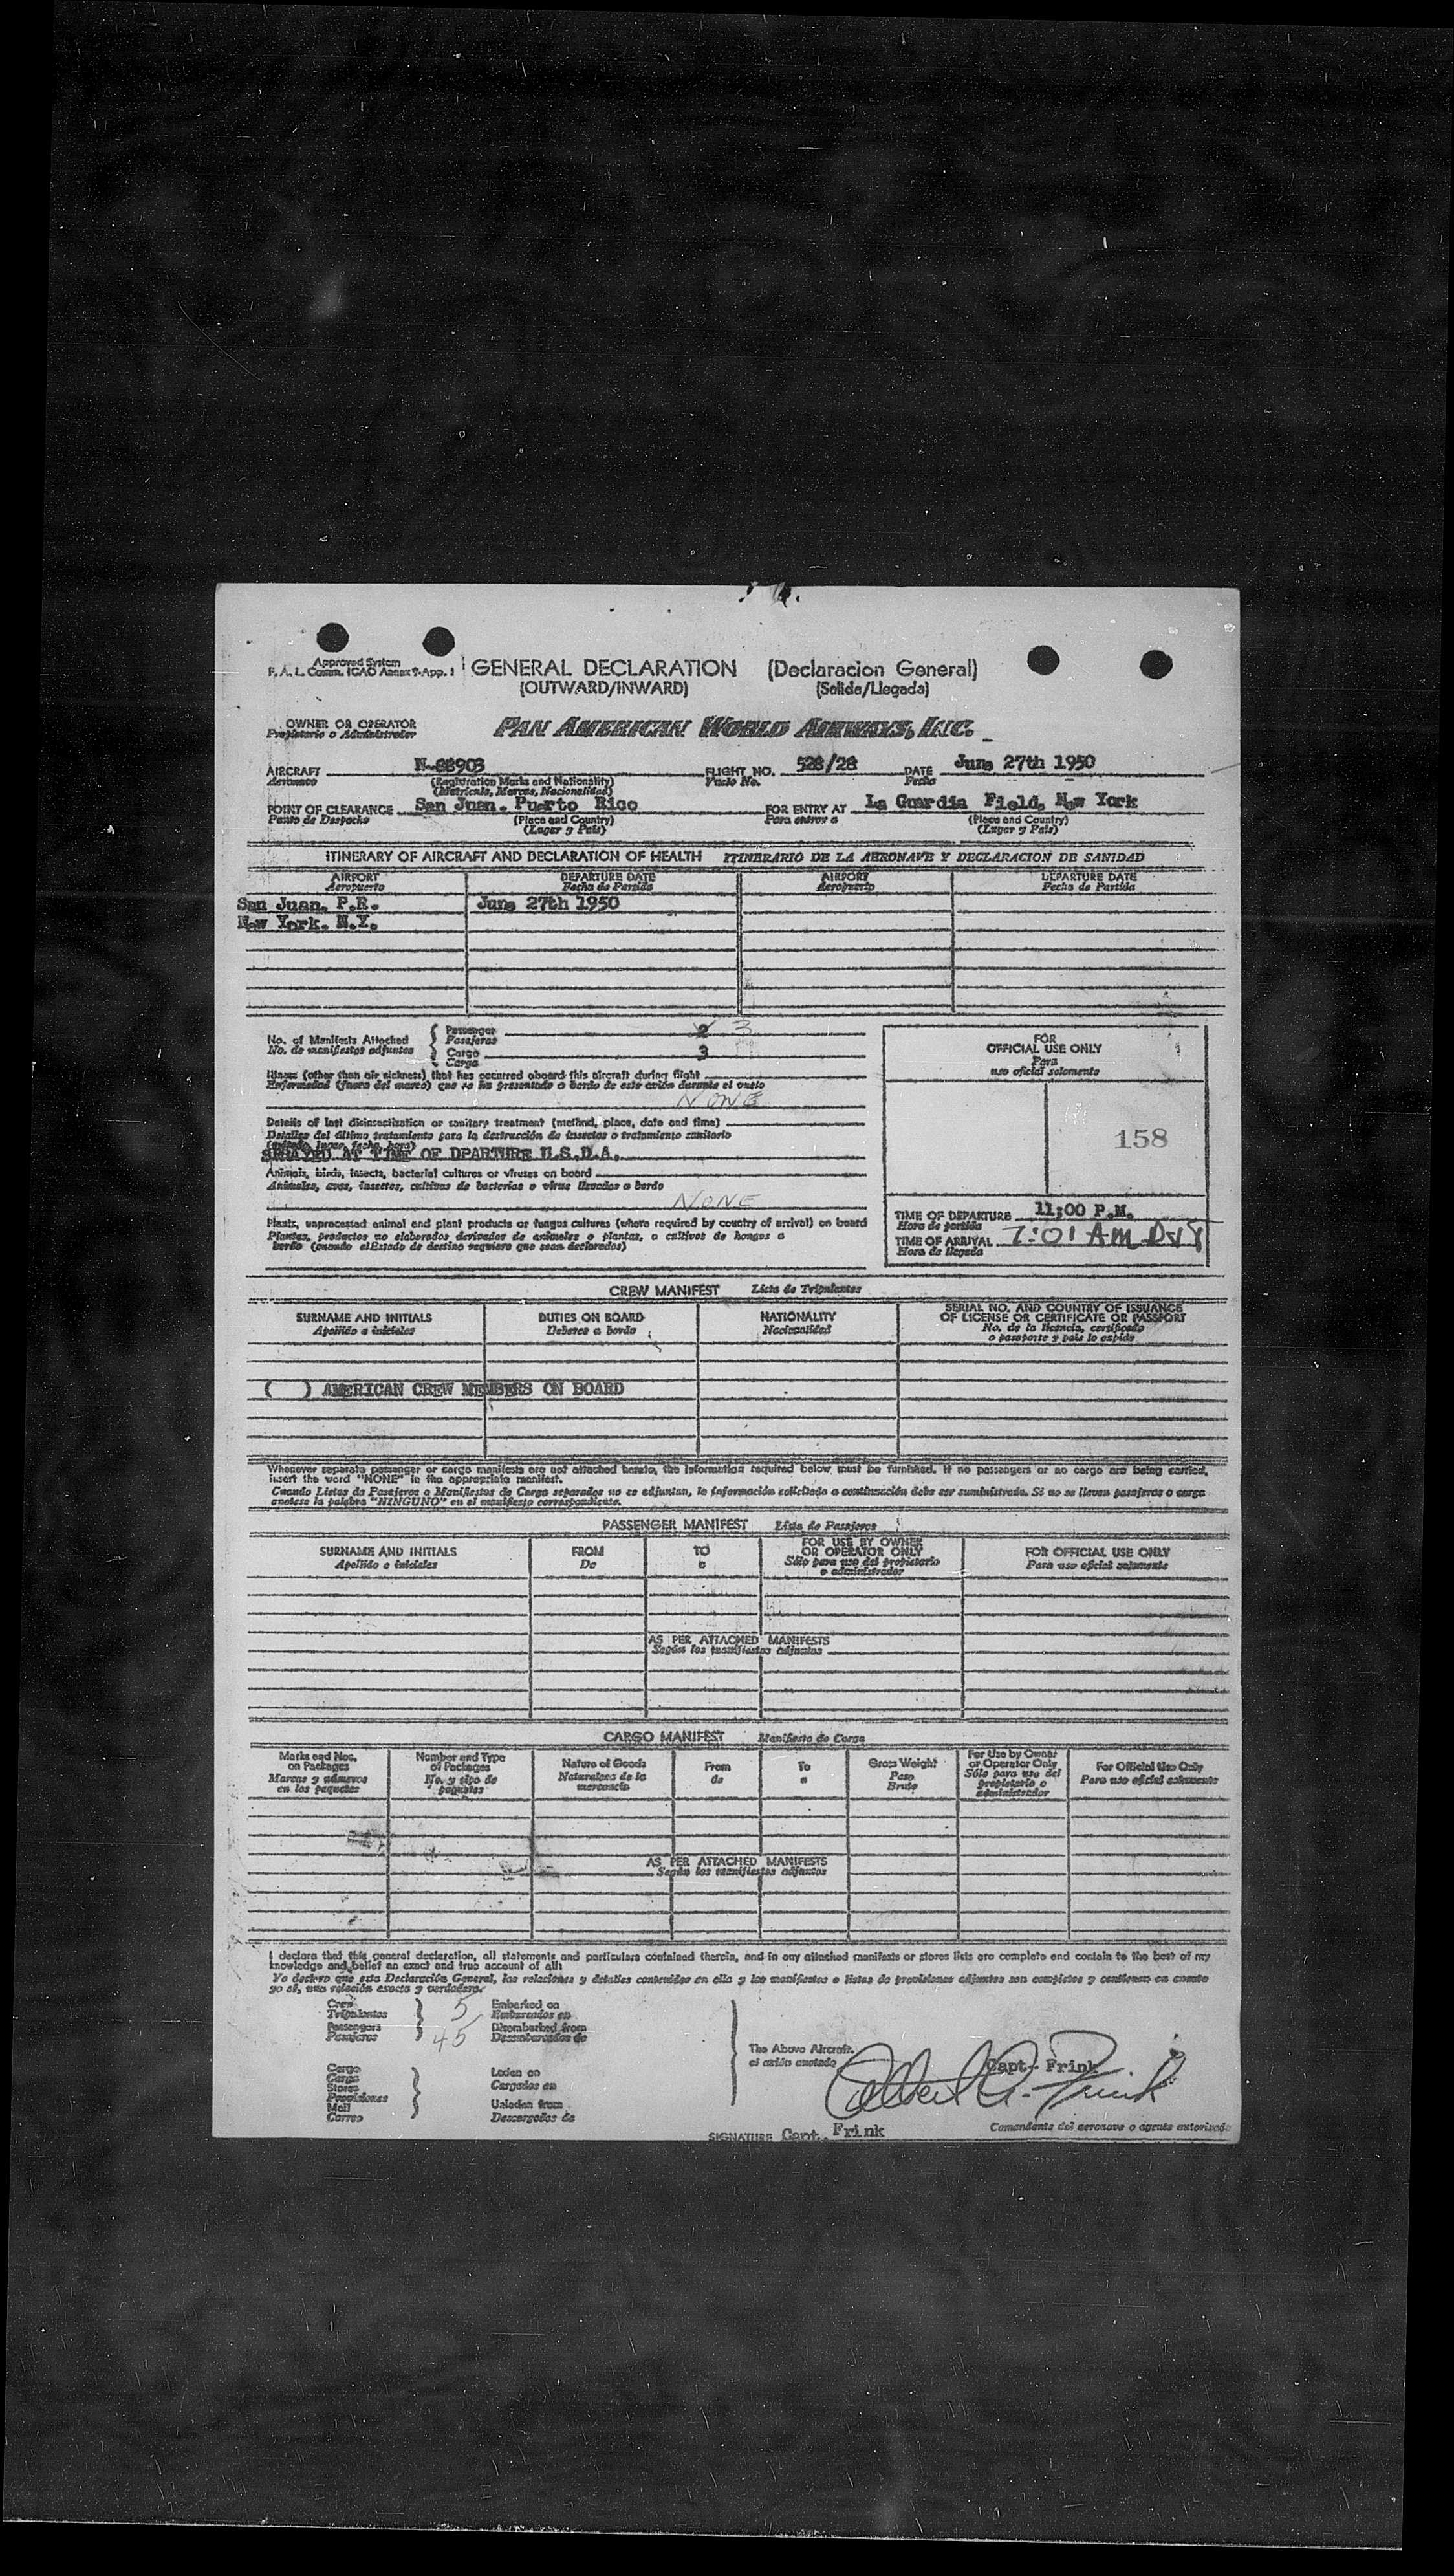 Approved System
F. A. L. Comm. ICAO Annex 9-App. 1
GENERAL DECLARATION (Declaracion General)
(OUTWARD/INWARD) (Salida/Llegada)
OWNER OR OPERATOR PAN AMERICAN WORLD AIRWAYS, INC.
Propietario o Administrador
AIRCRAFT N-88903 FLIGHT NO. 528/28 DATE June 27th 1950
Aeronave (Registration Marks and Nationality) Vuelo No. Fecha
(Matricula, Marcas, Nacionalidad)
POINT OF CLEARANCE San Juan. Puerto Rico FOR ENTRY AT La Guardia Field, New York
Punto de Despacho (Place and Country) Para entrar a (Place and Country)
(Lugar y Pais) (Lugar y Pais)
ITINERARY OF AIRCRAFT AND DECLARATION OF HEALTH ITINERARIO DE LA AERONAVE Y DECLARACION DE SANIDAD
AIRPORT DEPARTURE DATE AIRPORT DEPARTURE DATE
Aeropuerto Fecha de Partida Aeropuerto Fecha de Partida
San Juan. P.R. June 27th 1950
New York. N.Y.
No. of Manifests Attached Passenger 2 3
No. de manifiestos adjuntos Pasajeros
Cargo 3
Carga
Illness (other than air sickness) that has occurred aboard this aircraft during flight
Enfermedad (fuera del mareo) que se ha presentado a bordo de este avión durante el vuelo
NONE
Details of last disinsectization or sanitary treatment (method, place, date and time)
Detalles del último tratamiento para la destrucción de insectos o tratamiento sanitario
(método, lugar, fecha, hora)
SPRAYED AT TIME OF DPARTURE U.S.D.A.
Animals, birds, insects, bacterial cultures or viruses on board
Animales, aves, insectos, cultivos de bacterias o virus llevados a bordo
NONE
Plants, unprocessed animal and plant products or fungus cultures (where required by country of arrival) on board
Plantas, productos no elaborados derivados de animales o plantas, o cultivos de hongos a
bordo (cuando el Estado de destino requiere que sean declarados)
FOR
OFFICIAL USE ONLY
Para
uso oficial solamente
158
TIME OF DEPARTURE 11:00 P.M.
Hora de partida
TIME OF ARRIVAL 7:01 AM
Hora de llegada
CREW MANIFEST Lista de Tripulantes
SURNAME AND INITIALS DUTIES ON BOARD NATIONALITY SERIAL NO. AND COUNTRY OF ISSUANCE
OF LICENSE OR CERTIFICATE OR PASSPORT
Apellido e iniciales Deberes a bordo Nacionalidad No. de la licencia, certificado
o pasaporte y pais lo expide
( ) AMERICAN CREW MEMBERS ON BOARD
Whenever separate passenger or cargo manifests are not attached hereto, the information required below must be furnished. If no passengers or no cargo are being carried,
insert the word "NONE" in the appropriate manifest.
Cuando Listas de Pasajeros o Manifiestos de Carga separados no se adjuntan, la información solicitada a continuación debe ser suministrada. Si no se llevan pasajeros o carga
anotese la palabra "NINGUNO" en el manifiesto correspondiente.
PASSENGER MANIFEST Lista de Pasajeros
SURNAME AND INITIALS FROM TO FOR USE BY OWNER
OR OPERATOR ONLY FOR OFFICIAL USE ONLY
Apellido e iniciales De a Sólo para uso del propietario
o administrador Para uso oficial solamente
AS PER ATTACHED MANIFESTS
Según los manifiestos adjuntos
CARGO MANIFEST Manifiesto de Carga
Marks and Nos.
on Packages
Marcas y números
en los paquetes
Number and Type
of Packages
No. y tipo de
paquetes
Nature of Goods
Naturaleza de la
mercancía
From
de
To
a
Gross Weight
Peso
Bruto
For Use by Owner
or Operator Only
Sólo para uso del
propietario o
administrador
For Official Use Only
Para uso oficial solamente
AS PER ATTACHED MANIFESTS
Según los manifiestos adjuntos
I declare that this general declaration, all statements and particulars contained therein, and in any attached manifests or stores lists are complete and contain to the best of my
knowledge and belief an exact and true account of all:
Yo declaro que esta Declaración General, las relaciones y detalles contenidos en ella y los manifiestos o listas de provisiones adjuntos son completos y contienen en cuanto
yo sé, una relación exacta y verdadera.
Crew 5 Embarked on
Tripulantes Embarcados en
Passengers 45 Disembarked from
Pasajeros Desembarcados de
The Above Aircraft.
el avión anotado
Cargo Laden on
Carga Cargados en
Stores
Provisiones
Mail Unladen from
Correo Descargados de
Capt. Frink
Albert A. Frink
SIGNATURE Capt. Frink Comandante del aeronave o agente autorizado